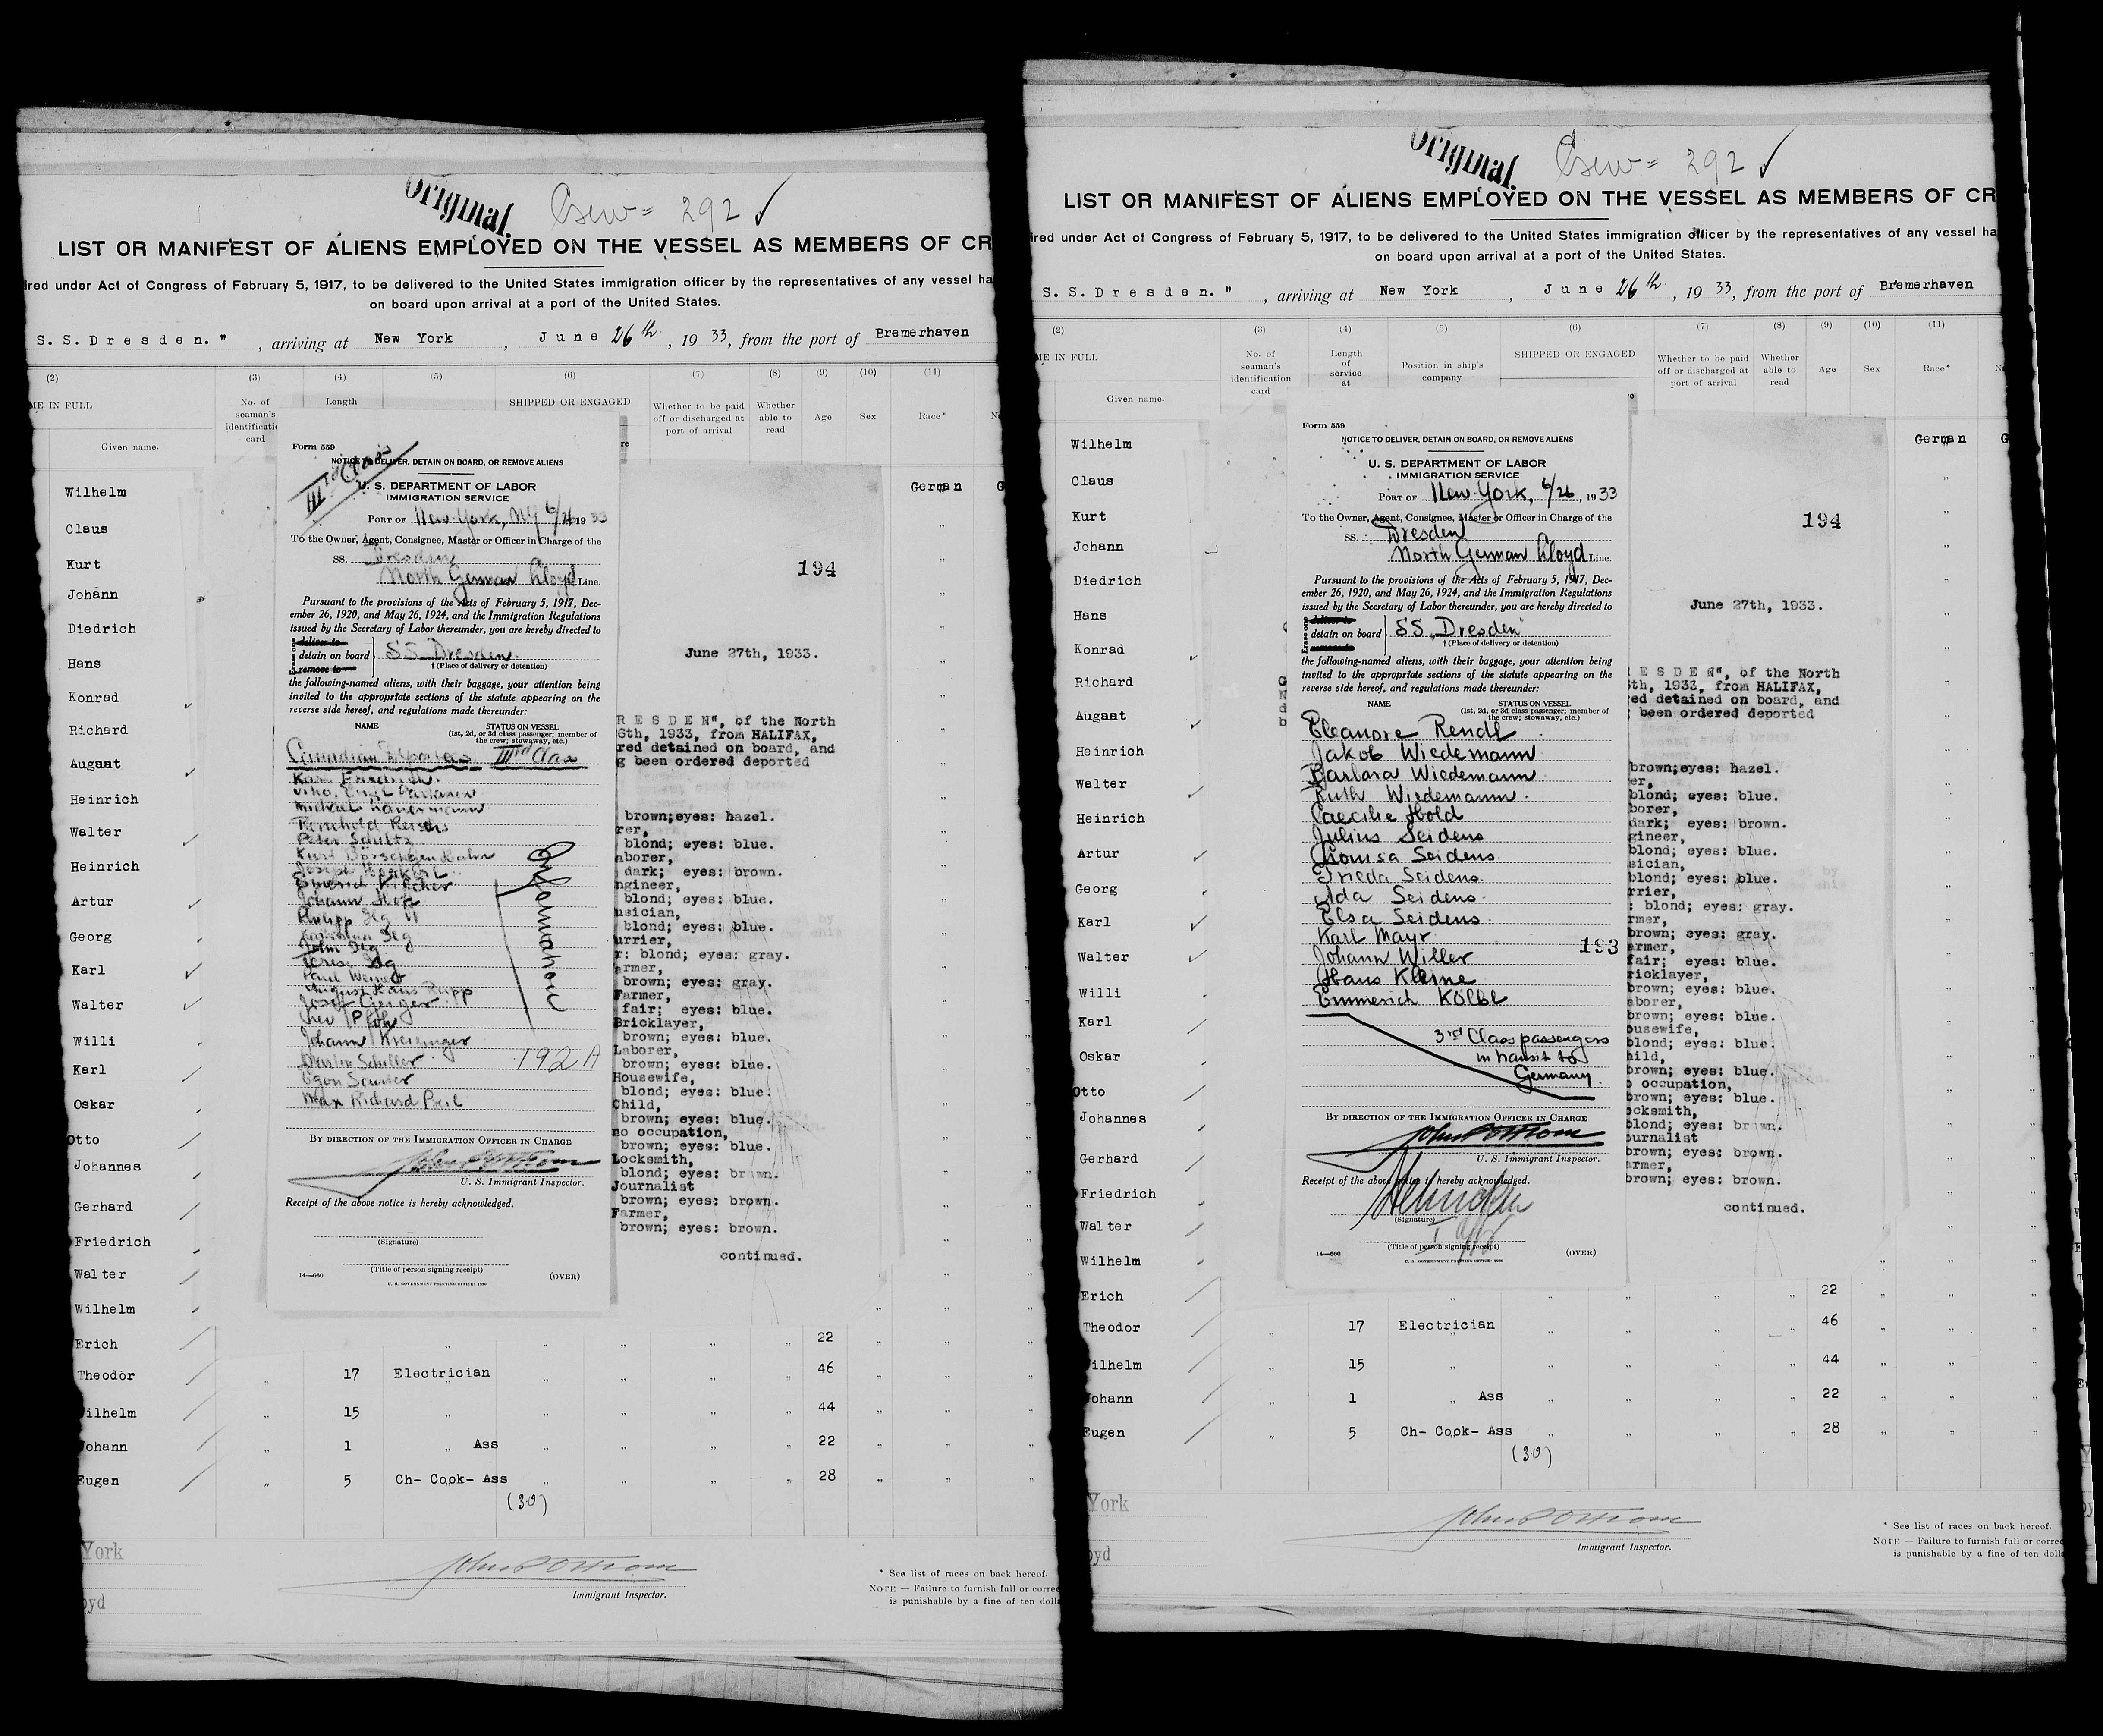 Original.
Crew = 292 ✓
LIST OR MANIFEST OF ALIENS EMPLOYED ON THE VESSEL AS MEMBERS OF CR
ired under Act of Congress of February 5, 1917, to be delivered to the United States immigration officer by the representatives of any vessel ha
on board upon arrival at a port of the United States.
S. S. D r e s d e n. " , arriving at New York , J u n e 26th , 19 33, from the port of Bremerhaven
(2) (3) (4) (5) (6) (7) (8) (9) (10) (11)
ME IN FULL
Given name.
No. of
seaman's
card
Length
SHIPPED OR ENGAGED
Whether to be paid
off or discharged at
port of arrival
Whether
able to
read
Age
Sex
Race*
German
Wilhelm
Claus
Kurt
Johann
Diedrich
Hans
Konrad
Richard
August
Heinrich
Walter
Heinrich
Artur
Georg
Karl
Walter
Willi
Karl
Oskar
Otto
Johannes
Gerhard
Friedrich
Walter
Wilhelm
Erich 22
Theodor 17 Electrician 46
ilhelm 15 " 44
Johann 1 " Ass 22
Eugen 5 Ch- Cook- Ass 28
(30)
Form 559
IIIrd Class
NOTICE TO DELIVER, DETAIN ON BOARD, OR REMOVE ALIENS
U. S. DEPARTMENT OF LABOR
IMMIGRATION SERVICE
PORT OF New York, NY 6/26 19 33
To the Owner, Agent, Consignee, Master or Officer in Charge of the
SS. Dresden
North German Lloyd Line.
Pursuant to the provisions of the Acts of February 5, 1917, Dec-
ember 26, 1920, and May 26, 1924, and the Immigration Regulations
issued by the Secretary of Labor thereunder, you are hereby directed to
Erase one
deliver to
detain on board SS Dresden.
remove to
† (Place of delivery or detention)
the following-named aliens, with their baggage, your attention being
invited to the appropriate sections of the statute appearing on the
reverse side hereof, and regulations made thereunder:
NAME STATUS ON VESSEL
(1st, 2d, or 3d class passenger; member of
the crew; stowaway, etc.)
Canadian Deportees IIIrd Class
Karl Friedrich
Reinhold
Peter Schultz
Kurt
Joseph
Emerich
Johann
Philipp Ilg
Ilg
John Ilg
Terese Ilg
Paul
August Hans Rupp
Josef Geiger
Johann Kreisinger
Martin Schuller
Egon
Max Richard
192 A
BY DIRECTION OF THE IMMIGRATION OFFICER IN CHARGE
U. S. Immigrant Inspector.
Receipt of the above notice is hereby acknowledged.
(Signature)
(Title of person signing receipt)
14—660 (OVER)
U. S. GOVERNMENT PRINTING OFFICE: 1930
194
June 27th, 1933.
R E S D E N", of the North
6th, 1933, from HALIFAX,
red detained on board, and
g been ordered deported
brown;eyes: hazel.
rer,
blond; eyes: blue.
aborer,
dark; eyes: brown.
ngineer,
blond; eyes: blue.
usician,
blond; eyes: blue.
urrier,
r: blond; eyes: gray.
armer,
brown; eyes: gray.
Farmer,
fair; eyes: blue.
Bricklayer,
brown; eyes: blue.
Laborer,
brown; eyes: blue.
Housewife,
blond; eyes: blue.
Child,
brown; eyes: blue.
no occupation,
brown; eyes: blue.
Locksmith,
blond; eyes: brown.
Journalist
brown; eyes: brown.
Farmer,
brown; eyes: brown.
continued.
York
oyd
Immigrant Inspector.
* See list of races on back hereof.
NOTE — Failure to furnish full or correc
is punishable by a fine of ten dolla
Original.
Crew = 292 ✓
LIST OR MANIFEST OF ALIENS EMPLOYED ON THE VESSEL AS MEMBERS OF CR
ired under Act of Congress of February 5, 1917, to be delivered to the United States immigration officer by the representatives of any vessel ha
on board upon arrival at a port of the United States.
S. S. D r e s d e n. " , arriving at New York , J u n e 26th , 19 33, from the port of Bremerhaven
(2) (3) (4) (5) (6) (7) (8) (9) (10) (11)
ME IN FULL
Given name.
No. of
seaman's
identification
card
Length
of
service
at
Position in ship's
company
SHIPPED OR ENGAGED
Whether to be paid
off or discharged at
port of arrival
Whether
able to
read
Age
Sex
Race*
German
Wilhelm
Claus
Kurt
Johann
Diedrich
Hans
Konrad
Richard
August
Heinrich
Walter
Heinrich
Artur
Georg
Karl
Walter
Willi
Karl
Oskar
Otto
Johannes
Gerhard
Friedrich
Walter
Wilhelm
Erich 22
Theodor 17 Electrician 46
ilhelm 15 " 44
Johann 1 " Ass 22
Eugen 5 Ch- Cook- Ass 28
(30)
Form 559
NOTICE TO DELIVER, DETAIN ON BOARD, OR REMOVE ALIENS
U. S. DEPARTMENT OF LABOR
IMMIGRATION SERVICE
PORT OF New York, 6/26, 19 33
To the Owner, Agent, Consignee, Master or Officer in Charge of the
SS. Dresden
North German Lloyd Line.
Pursuant to the provisions of the Acts of February 5, 1917, Dec-
ember 26, 1920, and May 26, 1924, and the Immigration Regulations
issued by the Secretary of Labor thereunder, you are hereby directed to
Erase one
deliver to
detain on board SS „Dresden"
remove to
† (Place of delivery or detention)
the following-named aliens, with their baggage, your attention being
invited to the appropriate sections of the statute appearing on the
reverse side hereof, and regulations made thereunder:
NAME STATUS ON VESSEL
(1st, 2d, or 3d class passenger; member of
the crew; stowaway, etc.)
Eleanore Rendl
Jakob Wiedemann
Barbara Wiedemann
Ruth Wiedemann
Caecilie Hold
Julius Seidens
Louisa Seidens
Frieda Seidens
Ada Seidens
Elsa Seidens
Karl Mayr
193
Johann Willer
Hans Kleine
Emmerich Kölbl
3rd Class passengers
in transit to
Germany.
BY DIRECTION OF THE IMMIGRATION OFFICER IN CHARGE
U. S. Immigrant Inspector.
Receipt of the above notice is hereby acknowledged.
(Signature)
(Title of person signing receipt)
14—660 (OVER)
U. S. GOVERNMENT PRINTING OFFICE: 1930
194
June 27th, 1933.
R E S D E N", of the North
6th, 1933, from HALIFAX,
ed detained on board, and
been ordered deported
brown;eyes: hazel.
er,
blond; eyes: blue.
borer,
dark; eyes: brown.
gineer,
blond; eyes: blue.
sician,
blond; eyes: blue.
rrier,
: blond; eyes: gray.
rmer,
brown; eyes: gray.
armer,
fair; eyes: blue.
ricklayer,
brown; eyes: blue.
aborer,
brown; eyes: blue.
ousewife,
blond; eyes: blue.
hild,
brown; eyes: blue.
o occupation,
brown; eyes: blue.
ocksmith,
blond; eyes: brown.
ournalist
brown; eyes: brown.
armer,
brown; eyes: brown.
continued.
York
oyd
Immigrant Inspector.
* See list of races on back hereof.
NOTE — Failure to furnish full or correc
is punishable by a fine of ten dolla